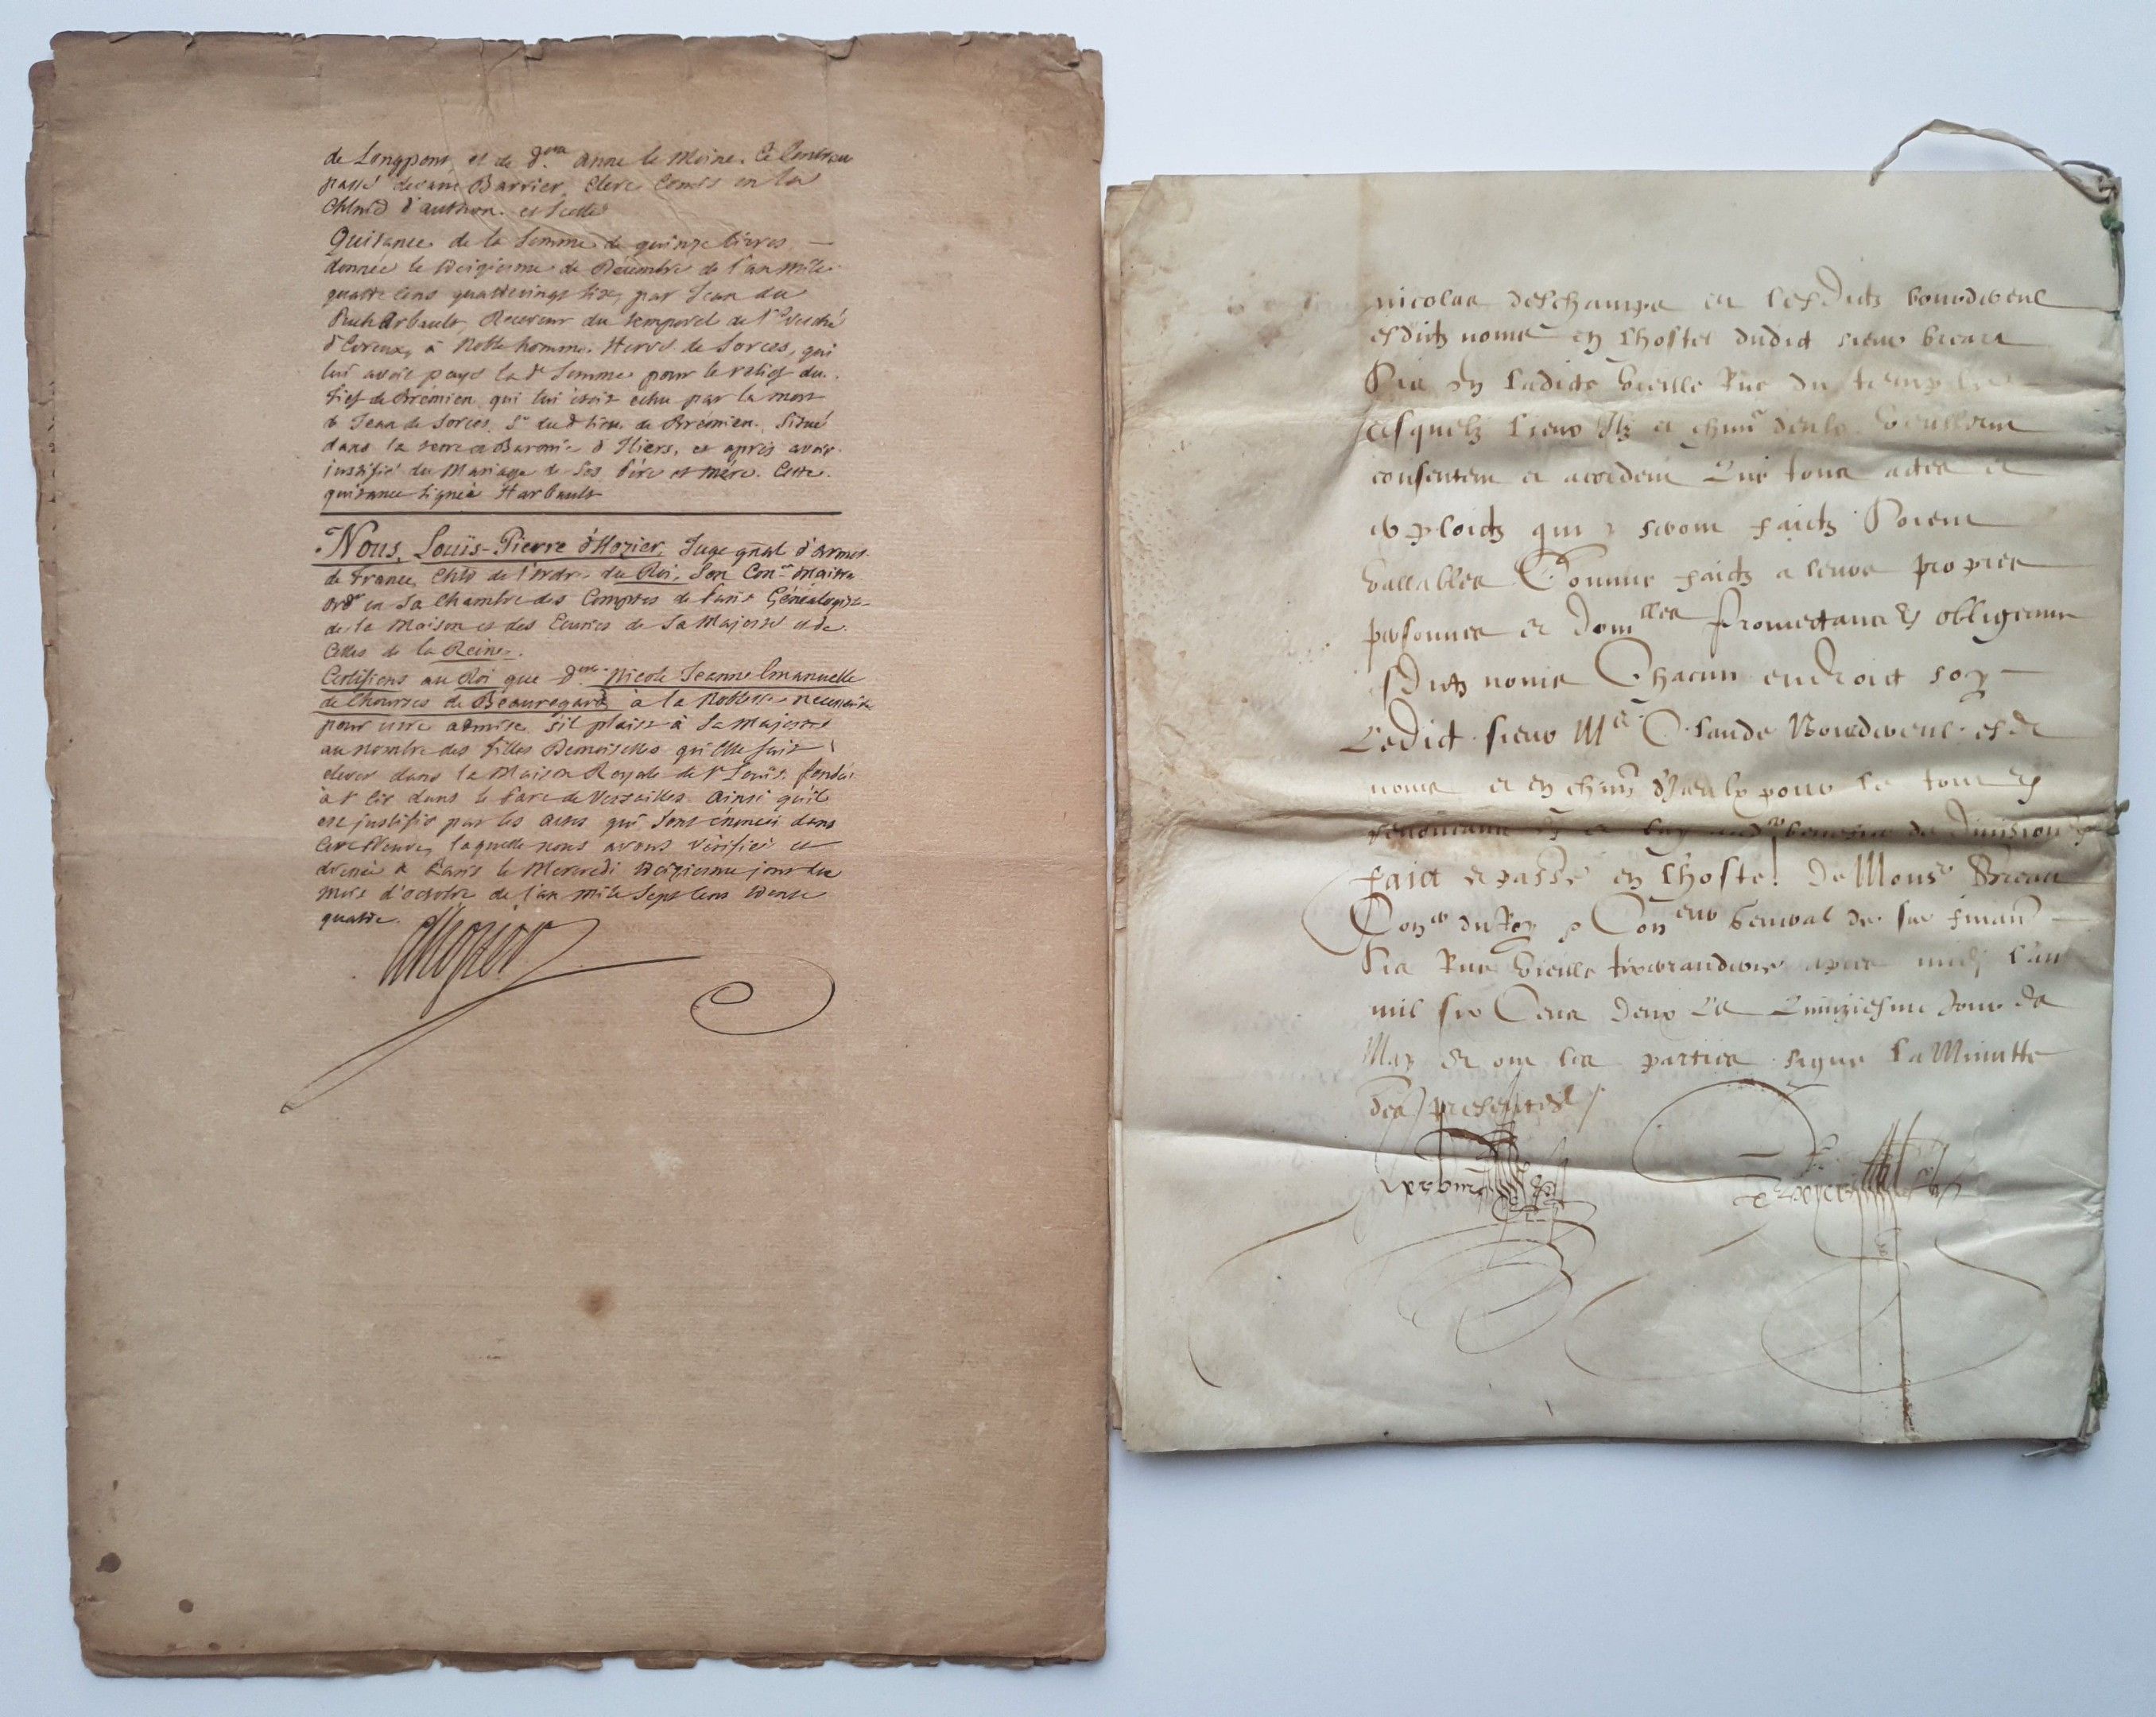 de Longpont et de d.elle Anne le Moine. Ce Contrat
passé devant Barrier, Clerc Comis en la
Chlnie d'authon. et scellé
Quitance de la somme de quinze livres
donnée le de Décembre de l'an mile
quatre cens quatrevingt six, par Jean du
Receveur du temporel de l'Evesché
d'Evreux, à Noble homme Hervé de Sorces, qui
lui avoit payé la de somme pour le relief du
fief de Brémien qui lui étoit echu par la mort
de Jean de Sorces, Sr. dud. lieu de Brémien. Situé
dans la terre et Baronie d'Illiers, et après avoir
justifié du Mariage de ses Père et mère. Cette
quitance signée Harbault
Nous, Louis-Pierre d'Hozier, Juge gñal d'armes
de France, Chlr de l'ordre du Roi, Son Con.er Maitre
ord.re en sa Chambre des Comptes de Paris Généalogiste
de la Maison et des Ecuries de Sa Majesté et de
Celles de la Reine.
Certifions au Roi que d.elle Nicole Jeanne Emanuelle
de Chourses de Beauregard à la Noblesse necessaire
pour etre admise s'il plaist à Sa Majesté
au nombre des filles Demoiselles qu'Elle fait
elever dans la Maison Royale de St Louis fondée
à St Cir dans le Parc de Versailles. Ainsi qu'il
est justifié par les actes qui sont énoncés dans
Cette Preuve, laquelle nous avons vérifiée et
dressée à Paris le Mercredi jour du
mois d'octobre de l'an mile sept cens trente
quatre.
d'hozier
nicolas deschamps et lesdictz bourdereul
esditz noms en lhostel dudict sieur breart
sis en ladicte vieille Rue du temple
Esquelz lieux Ilz et chun deulx veullent
consentent et accordent que tous actes et
exploictz qui y seront faictz soient
vallables Comme faictz a leurs propres
personnes et dom.lles Promettans & obligeans
esditz noms Chacun endroict soy
Ledict sieur Me Claude Bourdereul esd
noms et en chun d'Iceulx pour le tout &
renonceans de division
Faict et passé en lhostel De Mons.r Breart
Con.er du Roy & Con general de ses finan
sis Rue Vieille apres midy l'an
mil six Cens deux Le Quinziesme Jour de
May Et ont les parties signé La Minutte
des presentes